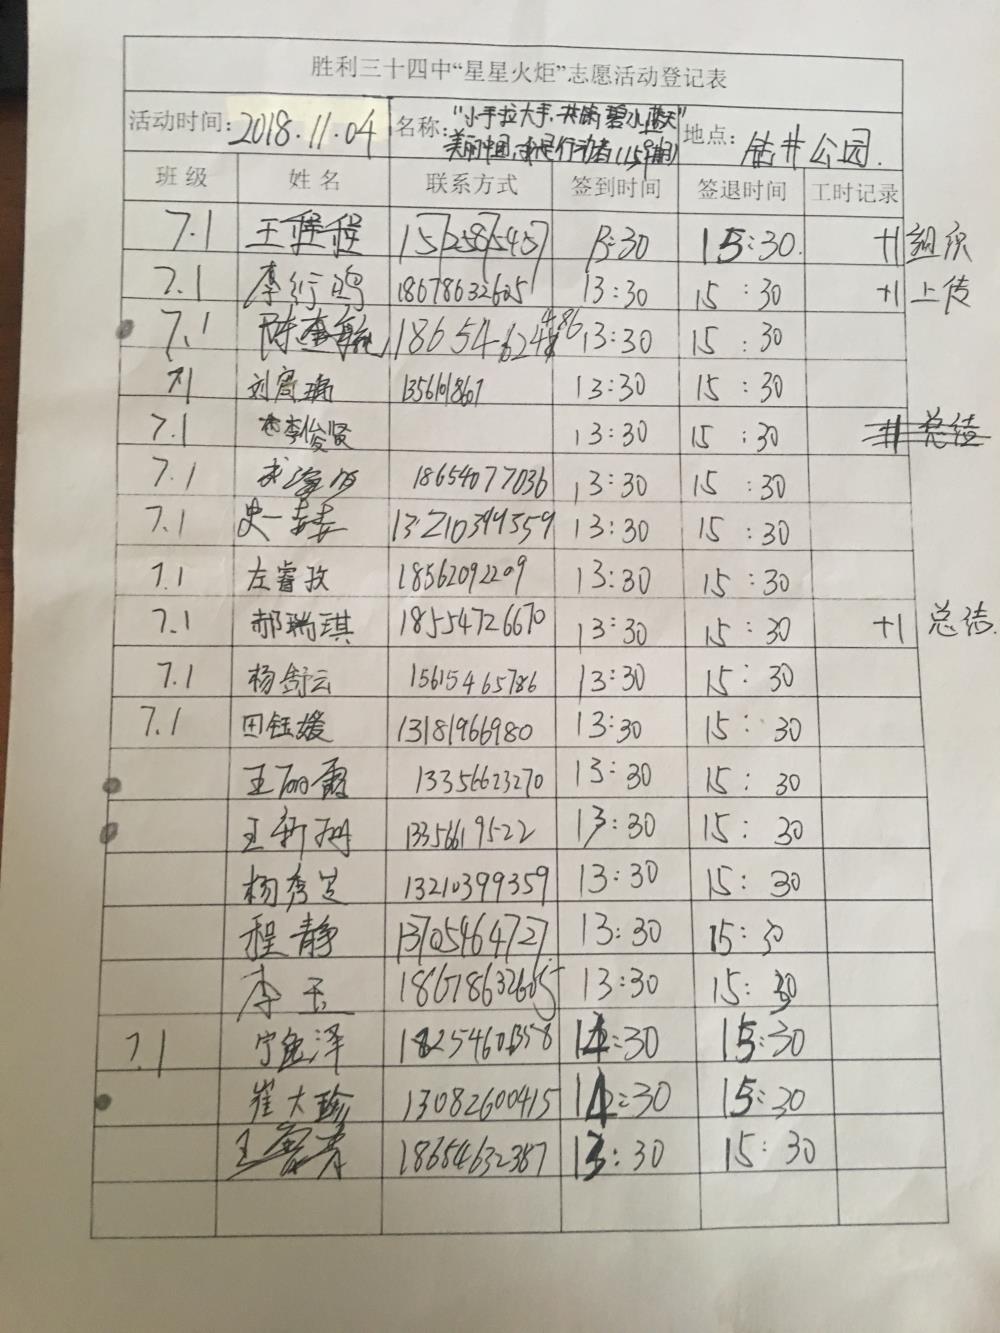 胜利三十四中“星星火炬”志愿活动登记表
活动时间: 2018.11.04 名称: "小手拉大手.共筑碧水蓝天" 地点: 钻井公园.
美丽中国,我是行动者(159期)
班级 姓名 联系方式 签到时间 签退时间 工时记录
7.1 王 15725875407 13:30 15:30. +1 组织
7.1 李行鸿 18678632605 13:30 15:30 +1 上传
7.1 陈 13:30 15:30
7.1 刘 13561018601 13:30 15:30
7.1 李俊贤 13:30 15:30 +1 总结
7.1 18654077036 13:30 15:30
7.1 史一 13210399359 13:30 15:30
7.1 左睿孜 18562092209 13:30 15:30
7.1 郝瑞琪 18554726670 13:30 15:30 +1 总结.
7.1 杨舒云 15615465786 13:30 15:30
7.1 田钰媛 13181966980 13:30 15:30
王丽霞 13356623270 13:30 15:30
王新 13356619522 13:30 15:30
杨秀芝 13210399359 13:30 15:30
程静 13705464727 13:30 15:30
李玉 18678632605 13:30 15:30
7.1 宁 泽 14:30 15:30
崔大珍 13082600415 14:30 15:30
王 18654632387 13:30 15:30